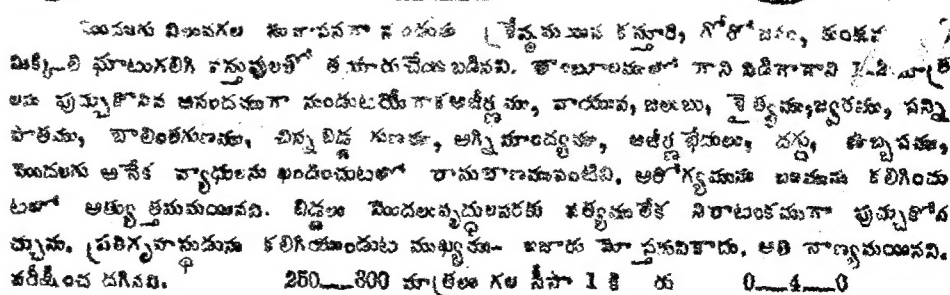 విలువగల శ్రేష్ఠమయిన కస్తూరి, గోరోజనం, కుంకుమ
మిక్కిలి ఘాటుగలిగి వస్తువులతో తయారుచేయబడినవి. తాంబూలములో గాని విడిగాగాని
లను పుచ్చుకొనిన ఆనందముగా నుందుటయేగాక అజీర్ణము, వాయువు, జలుబు, శైత్యము, జ్వరము, సన్ని
పాతము, బాలింతగుణము, చిన్న బిడ్డ గుణము, అగ్నిమాంద్యము, అజీర్ణ భేదులు, దగ్గు, ఉబ్బసము,
మొదలగు అనేక వ్యాధులను ఖండించుటలో రామబాణమువంటివి. ఆరోగ్యమును బలమును కలిగించు
టలో అత్యుత్తమమయినవి. బిడ్డలు మొదలు వృద్ధులవరకు పత్యములేక నిరాటంకముగా పుచ్చుకొన
చ్చును. ప్రతిగృహస్థుడును కలిగియుండుట ముఖ్యము- బజారు మోస్తరువికాదు. అతి నాణ్యమయినవి.
పరీక్షించ దగినవి. 250__300 మాత్రలు గల సీసా 1 కి రు 0__4__0